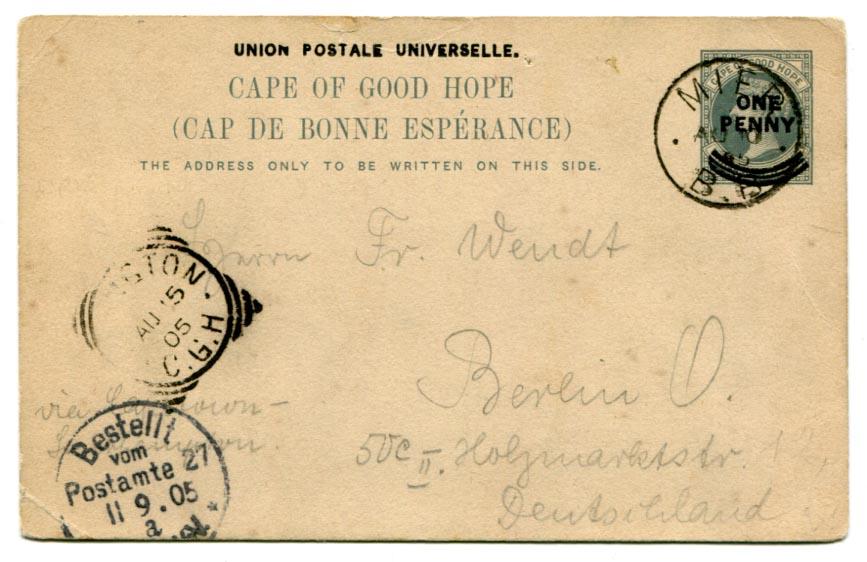 UNION POSTALE UNIVERSELLE.
CAPE OF GOOD HOPE
(CAP DE BONNE ESPÉRANCE)
THE ADDRESS ONLY TO BE WRITTEN ON THIS SIDE.
CAPE OF GOOD HOPE
ONE
PENNY
MIER
AU 10
05
B.B
Herrn Fr. Wendt
GTON.
AU 15
05
C.G.H
Berlin O.
via
50c II. Holzmarktstr.
Deutschland
Bestellt
vom
Postamte 27
11 9.05
a